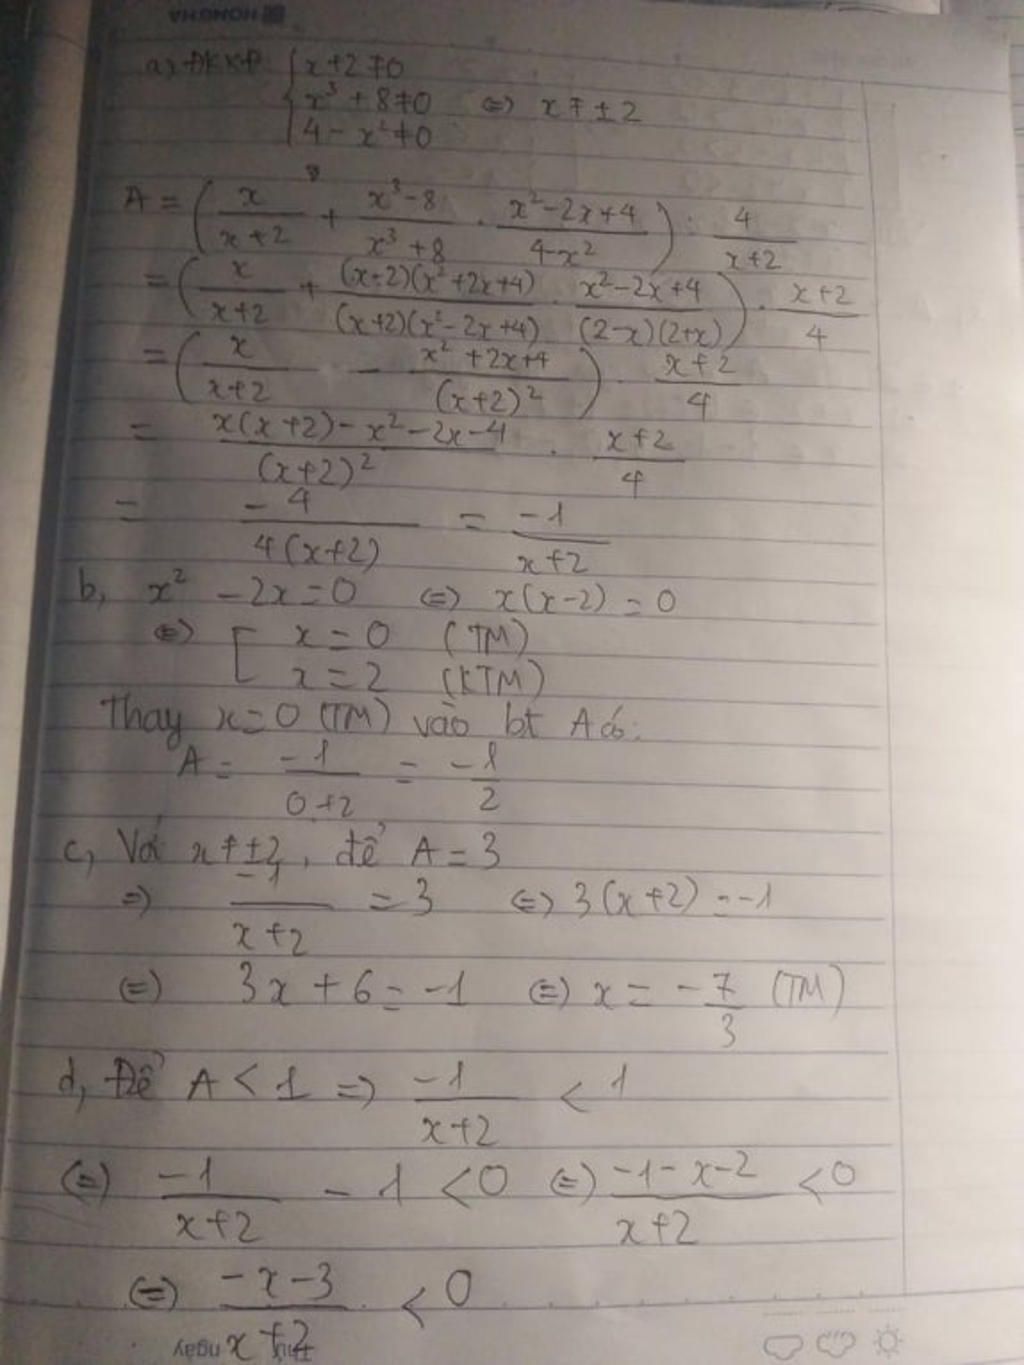 HONGHA
a) ĐKXĐ: { x+2≠0
x³+8≠0 ⇔ x≠±2
4-x²≠0
A = ( x/(x+2) + (x³-8)/(x³+8) . (x²-2x+4)/(4-x²) ) : 4/(x+2)
= ( x/(x+2) + (x-2)(x²+2x+4)/((x+2)(x²-2x+4)) . (x²-2x+4)/((2-x)(2+x)) ) . (x+2)/4
= ( x/(x+2) - (x²+2x+4)/(x+2)² ) . (x+2)/4
= (x(x+2)-x²-2x-4)/(x+2)² . (x+2)/4
= -4/(4(x+2)) = -1/(x+2)
b, x²-2x=0 ⇔ x(x-2)=0
⇔ [ x=0 (TM)
x=2 (KTM)
Thay x=0 (TM) vào bt A có:
A = -1/(0+2) = -1/2
c, Với x≠±2, để A=3
⇒ -1/(x+2) = 3 ⇔ 3(x+2)=-1
⇔ 3x+6=-1 ⇔ x=-7/3 (TM)
d, Để A<1 ⇒ -1/(x+2) < 1
⇔ -1/(x+2) - 1 <0 ⇔ (-1-x-2)/(x+2) <0
⇔ (-x-3)/(x+2) < 0
ngày